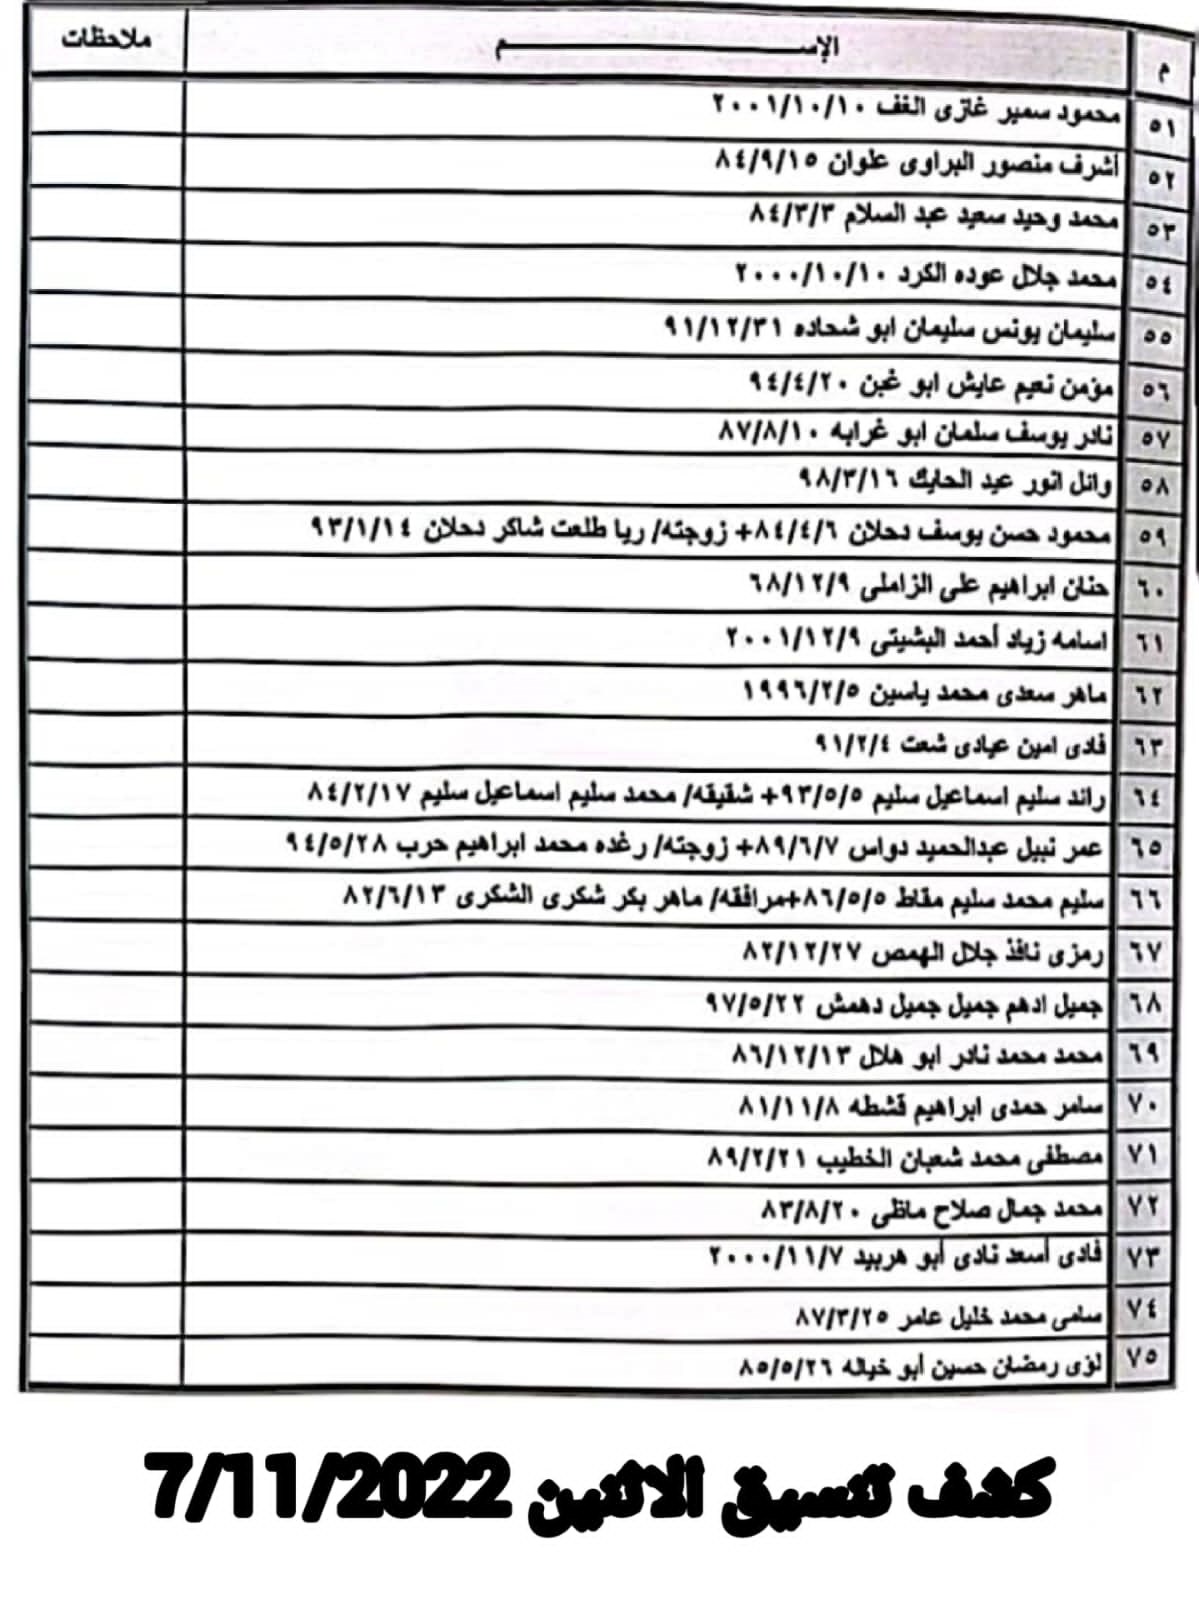 م الإســـــم ملاحظات
٥١ محمود سمير غازى الغف ٢٠٠١/١٠/١٠
٥٢ أشرف منصور البراوى علوان ٨٤/٩/١٥
٥٣ محمد وحيد سعيد عبد السلام ٨٤/٣/٣
٥٤ محمد جلال عوده الكرد ٢٠٠٠/١٠/١٠
٥٥ سليمان يونس سليمان ابو شحاده ٩١/١٢/٣١
٥٦ مؤمن نعيم عايش ابو غبن ٩٤/٤/٢٠
٥٧ نادر يوسف سلمان ابو غرابه ٨٧/٨/١٠
٥٨ وائل انور عيد الحايك ٩٨/٣/١٦
٥٩ محمود حسن يوسف دحلان ٨٤/٤/٦+ زوجته/ ريا طلعت شاكر دحلان ٩٣/١/١٤
٦٠ حنان ابراهيم على الزاملى ٦٨/١٢/٩
٦١ اسامه زياد أحمد البشيتى ٢٠٠١/١٢/٩
٦٢ ماهر سعدى محمد ياسين ١٩٩٦/٢/٥
٦٣ فادى امين عيادى شعت ٩١/٢/٤
٦٤ رائد سليم اسماعيل سليم ٩٣/٥/٥+ شقيقه/ محمد سليم اسماعيل سليم ٨٤/٢/١٧
٦٥ عمر نبيل عبدالحميد دواس ٨٩/٦/٧+ زوجته/ رغده محمد ابراهيم حرب ٩٤/٥/٢٨
٦٦ سليم محمد سليم مقاط ٨٦/٥/٥+مرافقه/ ماهر بكر شكرى الشكرى ٨٢/٦/١٣
٦٧ رمزى نافذ جلال الهمص ٨٢/١٢/٢٧
٦٨ جميل ادهم جميل جميل دهمش ٩٧/٥/٢٢
٦٩ محمد محمد نادر ابو هلال ٨٦/١٢/١٣
٧٠ سامر حمدى ابراهيم قشطه ٨١/١١/٨
٧١ مصطفى محمد شعبان الخطيب ٨٩/٢/٢١
٧٢ محمد جمال صلاح ماظى ٨٣/٨/٢٠
٧٣ فادى أسعد نادى أبو هربيد ٢٠٠٠/١١/٧
٧٤ سامى محمد خليل عامر ٨٧/٣/٢٥
٧٥ لؤى رمضان حسين أبو خياله ٨٥/٥/٢٦
كشف تنسيق الاثنين 7/11/2022